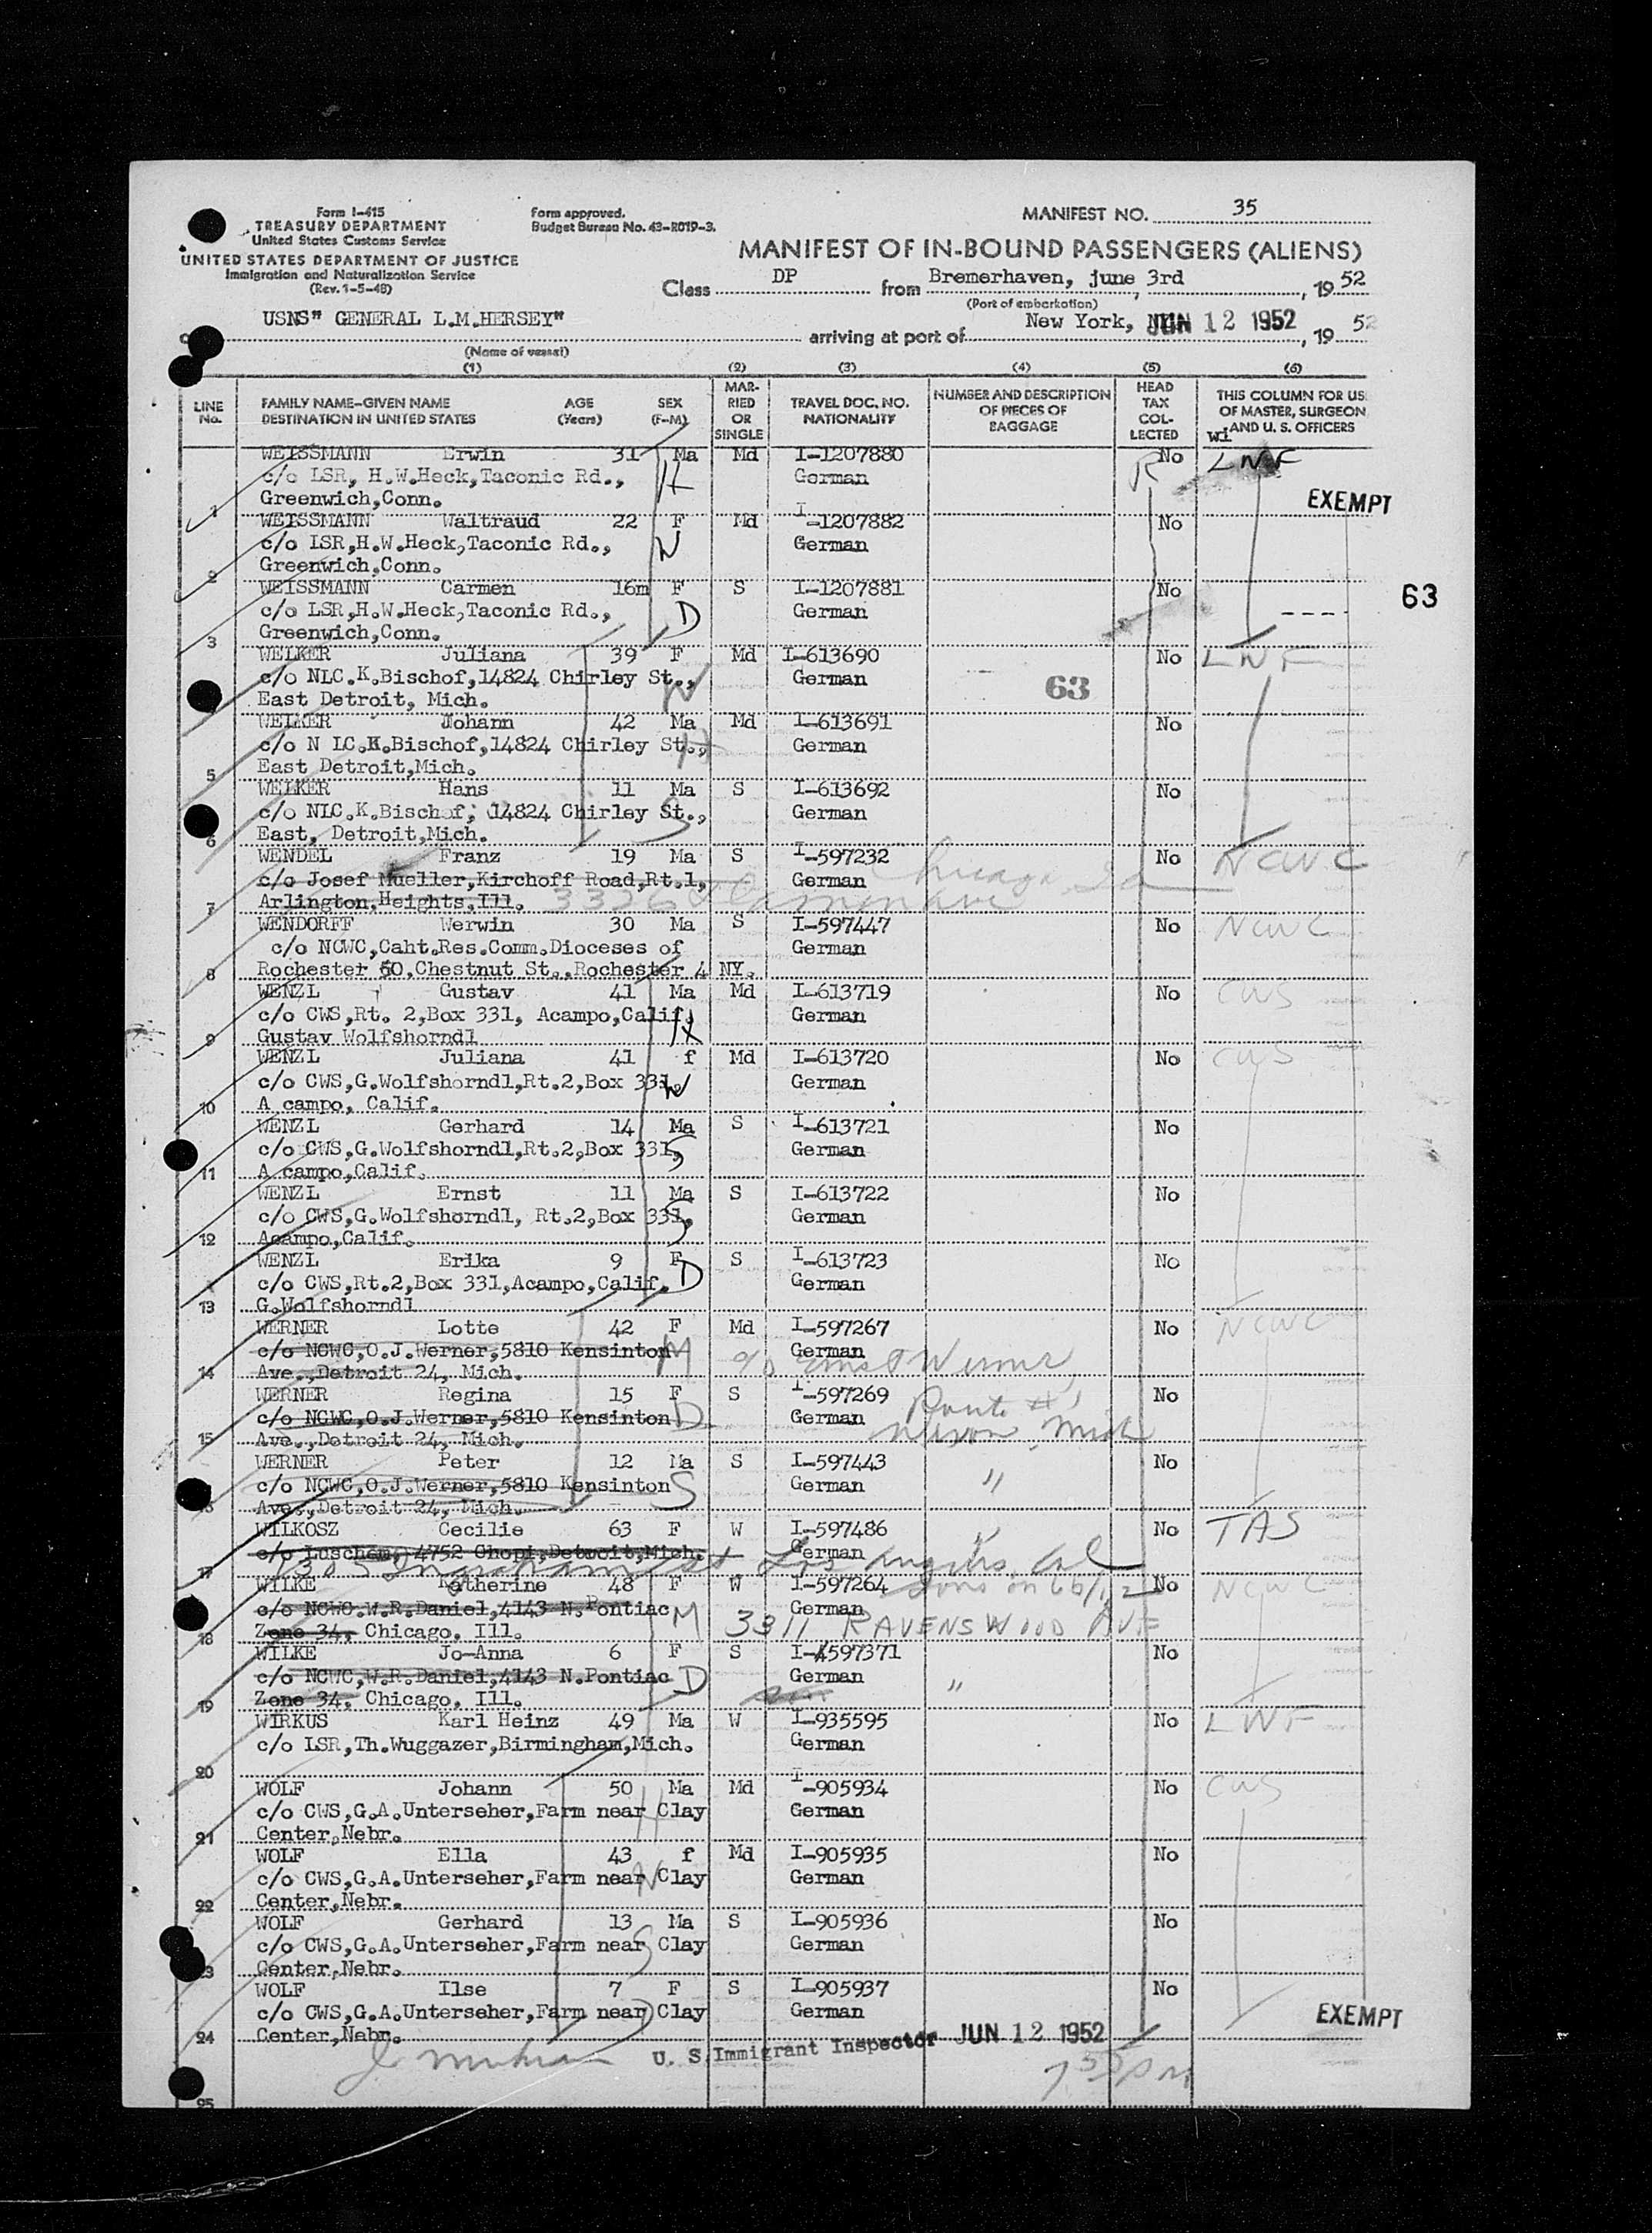 Form I-415
TREASURY DEPARTMENT
United States Customs Service
UNITED STATES DEPARTMENT OF JUSTICE
Immigration and Naturalization Service
(Rev. 1-5-48)
Form approved.
Budget Bureau No. 43-R019-3.
MANIFEST NO. 35
MANIFEST OF IN-BOUND PASSENGERS (ALIENS)
Class DP from Bremerhaven, june 3rd, 1952
(Port of embarkation)
USNS" GENERAL L.M.HERSEY" arriving at port of New York, JUN 12 1952, 19 52
(Name of vessel)
(1) (2) (3) (4) (5) (6)
LINE No. FAMILY NAME-GIVEN NAME DESTINATION IN UNITED STATES AGE (Years) SEX (F-M) MARRIED OR SINGLE TRAVEL DOC. NO. NATIONALITY NUMBER AND DESCRIPTION OF PIECES OF BAGGAGE HEAD TAX COLLECTED THIS COLUMN FOR US OF MASTER, SURGEON AND U. S. OFFICERS
WEISSMANN Erwin 31 Ma Md I-1207880 No LNF
c/o LSR, H.W.Heck,Taconic Rd., H German R
1 Greenwich,Conn. EXEMPT
WEISSMANN Waltraud 22 F Md I-1207882 No
c/o LSR,H.W.Heck,Taconic Rd., W German
2 Greenwich,Conn.
WEISSMANN Carmen 16m F S I-1207881 No
c/o LSR,H.W.Heck,Taconic Rd., D German ---- 63
3 Greenwich,Conn.
WELKER Juliana 39 F Md I-613690 No LNF
c/o NLC.K.Bischof,14824 Chirley St., W German 63
East Detroit, Mich.
WELKER Johann 42 Ma Md I-613691 No
c/o N LC.K.Bischof,14824 Chirley St., H German
5 East Detroit,Mich.
WELKER Hans 11 Ma S I-613692 No
c/o NLC.K.Bischof; 14824 Chirley St., S German
6 East, Detroit,Mich.
WENDEL Franz 19 Ma S I-597232 No NCWC
c/o Josef Mueller,Kirchoff Road,Rt.1, German Chicago
7 Arlington.Heights,Ill. 3326
WENDORFF Werwin 30 Ma S I-597447 No NCWC
c/o NCWC,Caht.Res.Comm.Dioceses of German
8 Rochester 50,Chestnut St.,Rochester 4 NY.
WENZL Gustav 41 Ma Md I-613719 No CWS
c/o CWS,Rt. 2,Box 331, Acampo,Calif. H German
9 Gustav Wolfshorndl
WENZL Juliana 41 f Md I-613720 No CWS
c/o CWS,G.Wolfshorndl,Rt.2,Box 331, W German
10 A campo, Calif.
WENZL Gerhard 14 Ma S I-613721 No
c/o CWS,G.Wolfshorndl,Rt.2,Box 331, S German
11 A campo,Calif.
WENZL Ernst 11 Ma S I-613722 No
c/o CWS,G.Wolfshorndl, Rt.2,Box 331, S German
12 Acampo,Calif.
WENZL Erika 9 F S I-613723 No
c/o CWS,Rt.2,Box 331,Acampo,Calif. D German
13 G.Wolfshorndl
WERNER Lotte 42 F Md I-597267 No NCWC
c/o NCWC,O.J.Werner,5810 Kensinton M German c/o Ernst Werner
14 Ave.,Detroit 24, Mich.
WERNER Regina 15 F S I-597269 No
c/o NCWC,O.J.Werner,5810 Kensinton D German Route #1
15 Ave.,Detroit 24, Mich. Mich
WERNER Peter 12 Ma S I-597443 No
c/o NCWC,O.J.Werner,5810 Kensinton S German "
Ave.,Detroit 24, Mich.
WILKOSZ Cecilie 63 F W I-597486 No TAS
c/o Luschem, 4752 Chopi,Detroit,Mich. German
17 Los Angeles, Cal
WILKE Katherine 48 F W I-597264 No NCWC
c/o NCWC.W.R.Daniel,4143 N.Pontiac M German
18 Zone 34, Chicago, Ill. 3311 RAVENSWOOD AVE
WILKE Jo-Anna 6 F S I-597371 No
c/o NCWC,W.R.Daniel,4143 N.Pontiac D German "
19 Zone 34, Chicago, Ill.
WIRKUS Karl Heinz 49 Ma W I-935595 No LWF
c/o LSR,Th.Wuggazer,Birmingham,Mich. German
20
WOLF Johann 50 Ma Md I-905934 No CWS
c/o CWS,G.A.Unterseher,Farm near Clay H German
21 Center,Nebr.
WOLF Ella 43 f Md I-905935 No
c/o CWS,G.A.Unterseher,Farm near Clay W German
22 Center,Nebr.
WOLF Gerhard 13 Ma S I-905936 No
c/o CWS,G.A.Unterseher,Farm near Clay S German
23 Center,Nebr.
WOLF Ilse 7 F S I-905937 No
c/o CWS,G.A.Unterseher,Farm near Clay D German EXEMPT
24 Center,Nebr.
U. S. Immigrant Inspector JUN 12 1952
25